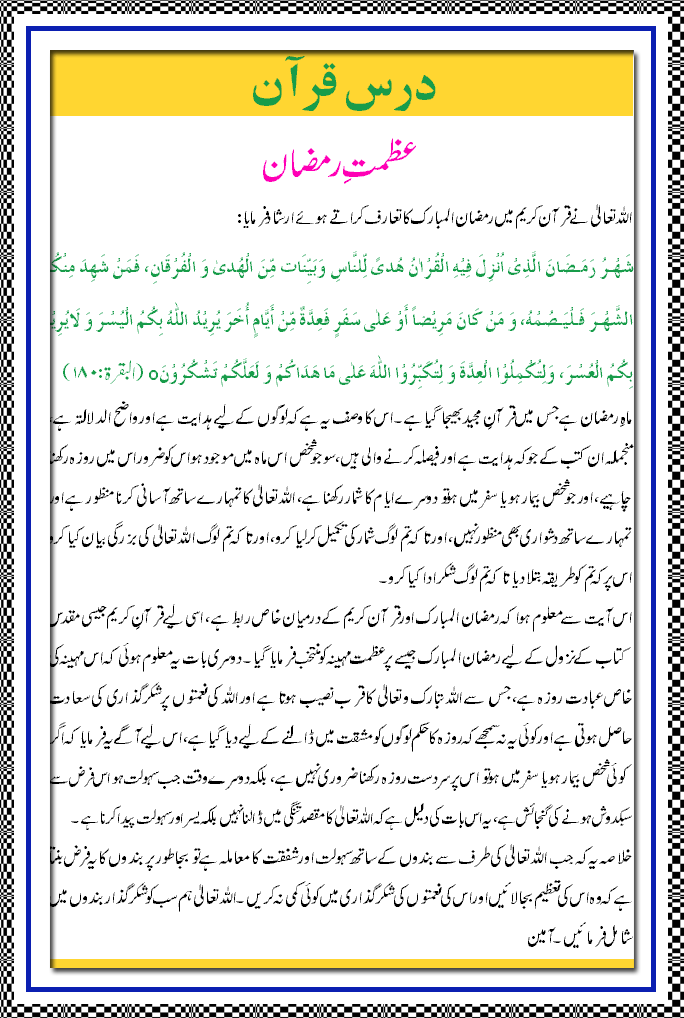 درس قرآن
عظمتِ رمضان
اللہ تعالیٰ نے قرآن کریم میں رمضان المبارک کا تعارف کراتے ہوئے ارشاد فرمایا:
شَهْرُ رَمَضَانَ الَّذِیْ اُنْزِلَ فِیْهِ الْقُرْاٰنُ هُدیً لِّلنَّاسِ وَبَیِّنَات مِّنَ الْهُدیٰ وَ الْفُرْقَانِ، فَمَنْ شَهِدَ مِنْكُ
الشَّهْرَ فَلْیَصُمْهُ، وَ مَنْ كَانَ مَرِیْضاً أَوْ عَلٰی سَفَرٍ فَعِدَّةٌ مِّنْ أَیَّامٍ أُخَرَ یُرِیْدُ اللّٰهُ بِكُمُ الْیُسْرَ وَ لَایُرِیْ
بِكُمُ الْعُسْرَ، وَلِتُكْمِلُوْا الْعِدَّةَ وَ لِتُكَبِّرُوْا اللّٰهَ عَلٰی مَا هَدَاكُمْ وَ لَعَلَّكُمْ تَشْكُرُوْنَo (البقرة: ۱۸۰)
ماہِ رمضان ہے جس میں قرآنِ مجید بھیجا گیا ہے۔ اس کا وصف یہ ہے کہ لوگوں کے لیے ہدایت ہے اور واضح الدلالۃ ہے،
منجملہ ان کتب کے جو کہ ہدایت ہے اور فیصلہ کرنے والی ہیں، سو جو شخص اس ماہ میں موجود ہو اس کو ضرور اس میں روزہ رکھنا
چاہیے، اور جو شخص بیمار ہو یا سفر میں ہو تو دوسرے ایام کا شمار رکھنا ہے، اللہ تعالیٰ کا تمہارے ساتھ آسانی کرنا منظور ہے اور
تمہارے ساتھ دشواری بھی منظور نہیں، اور تا کہ تم لوگ شمار کی تکمیل کر لیا کرو، اور تا کہ تم لوگ اللہ تعالیٰ کی بزرگی بیان کیا کرو
اس پر کہ تم کو طریقہ بتلا دیا تا کہ تم لوگ شکر ادا کیا کرو۔
اس آیت سے معلوم ہوا کہ رمضان المبارک اور قرآن کریم کے درمیان خاص ربط ہے، اسی لیے قرآنِ کریم جیسی مقدس
کتاب کے نزول کے لیے رمضان المبارک جیسے پر عظمت مہینہ کو منتخب فرمایا گیا۔ دوسری بات یہ معلوم ہوئی کہ اس مہینہ کی
خاص عبادت روزہ ہے، جس سے اللہ تبارک وتعالیٰ کا قرب نصیب ہوتا ہے اور اللہ کی نعمتوں پر شکر گذاری کی سعادت
حاصل ہوتی ہے اور کوئی یہ نہ سمجھے کہ روزہ کا حکم لوگوں کو مشقت میں ڈالنے کے لیے دیا گیا ہے، اس لیے آگے یہ فرمایا کہ اگر
کوئی شخص بیمار ہو یا سفر میں ہو تو اس پر سردست روزہ رکھنا ضروری نہیں ہے، بلکہ دوسرے وقت جب سہولت ہو اس فرض سے
سبکدوش ہونے کی گنجائش ہے، یہ اس بات کی دلیل ہے کہ اللہ تعالیٰ کا مقصد تنگی میں ڈالنا نہیں بلکہ یسر اور سہولت پیدا کرنا ہے۔
خلاصہ یہ کہ جب اللہ تعالیٰ کی طرف سے بندوں کے ساتھ سہولت اور شفقت کا معاملہ ہے تو بجا طور پر بندوں کا یہ فرض بنتا
ہے کہ وہ اس کی تعظیم بجا لائیں اور اس کی نعمتوں کی شکر گذاری میں کوئی کمی نہ کریں۔ اللہ تعالیٰ ہم سب کو شکر گذار بندوں میں
شامل فرمائیں۔ آمین